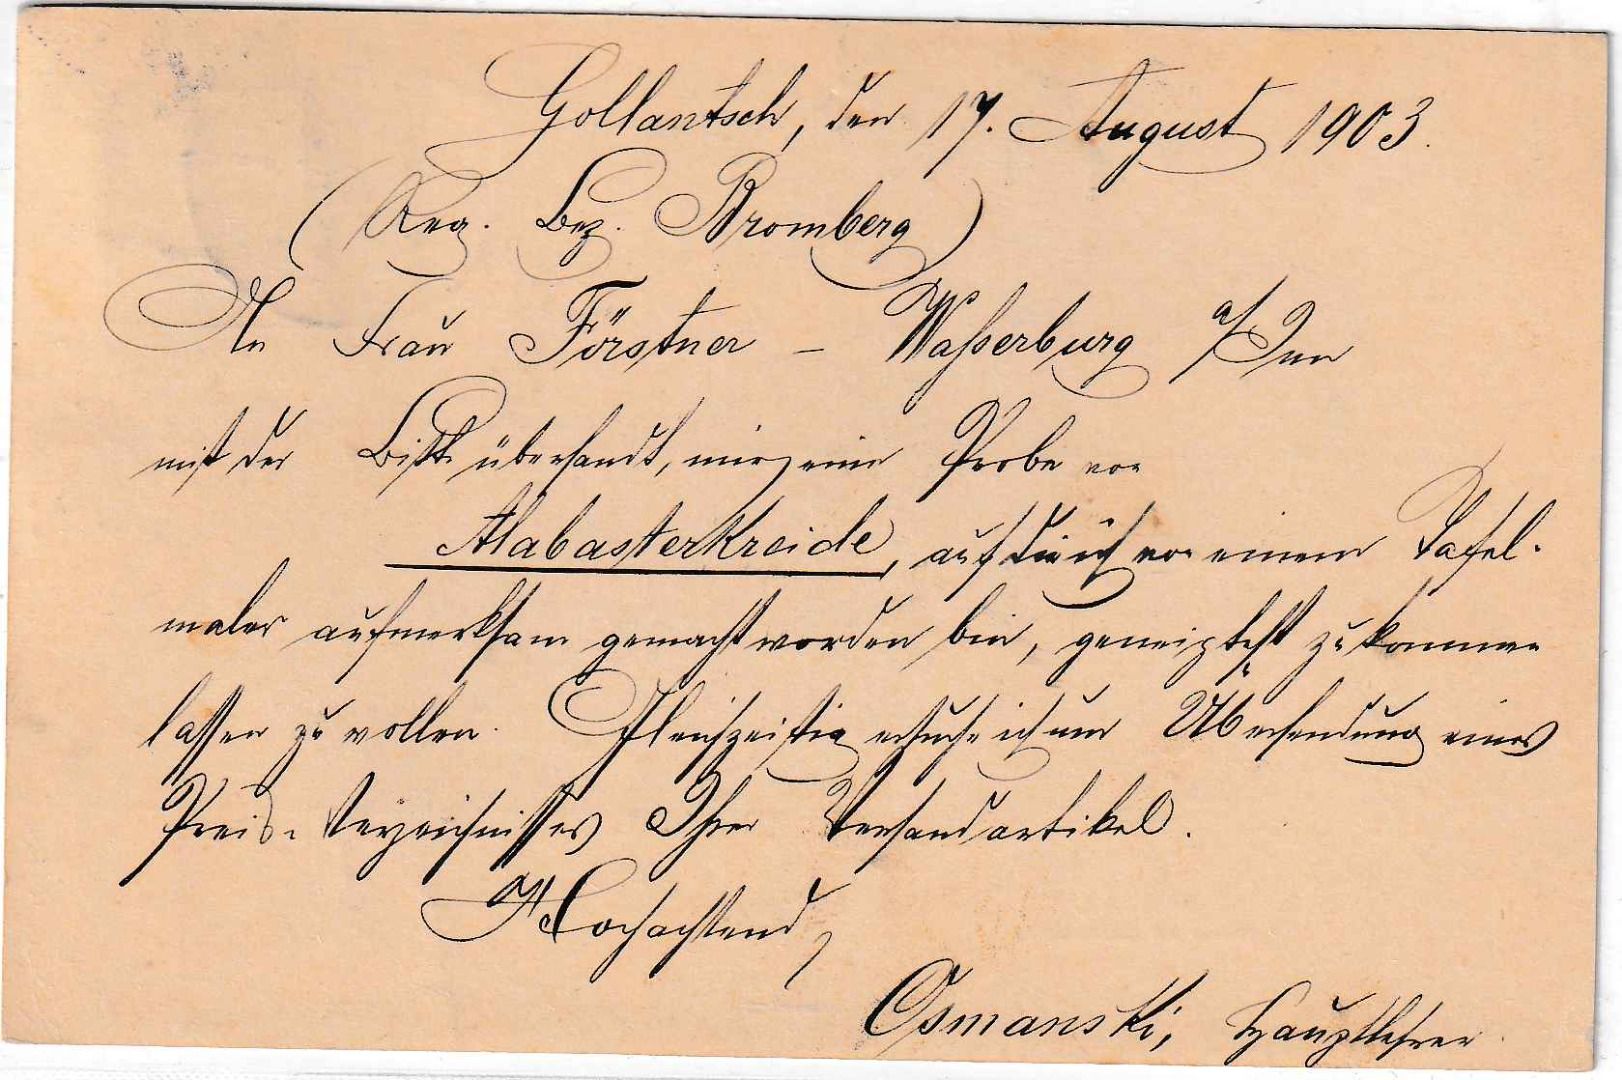 Gollantsch, den 17. August 1903.
(Reg. Bez. Bromberg)
An Frau Förstner – Wasserburg a/Inn
mit der Bitte übersandt, mir eine Probe von
Alabasterkreide, auf die ich von einem Tafel-
maler aufmerksam gemacht worden bin, geneigtest zukommen
lassen zu wollen. Gleichzeitig ersuche ich um Übersendung eines
Preis-Verzeichnisses Ihrer Versandartikel.
Hochachtend,
Osmanski, Hauptlehrer.